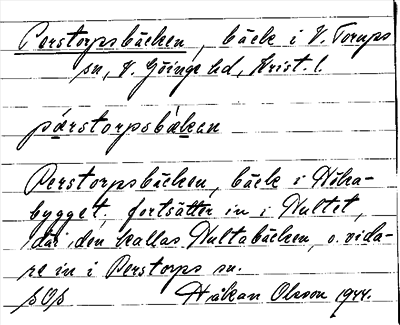 Perstorpsbäcken, bäck i V. Torups
sn, V. Göinge hd, Krist. l.
pärstorpsbäkan
Perstorpsbäcken, bäck i Höka-
bygget, fortsätter in i Hultet,
där den kallas Hultabäcken, o. vida-
re in i Perstorps sn.
SOS Håkan Olsson 1944.